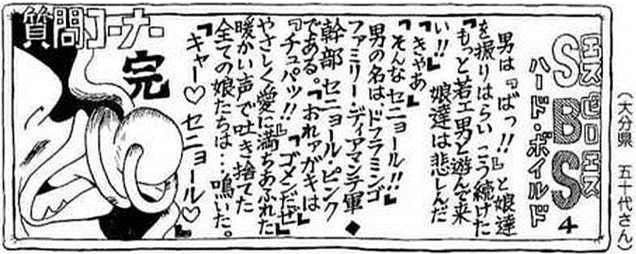 質問コーナー
エスビロエス
SBS
ハード・ボイルド
4
(大分県 五十代さん)
男は『ばっ!!』と娘達
を振りはらいこう続けた
「もっと若エ男と遊んで来
い!!」 娘達は悲しんだ
「きゃあ」
「そんなセニョール!!」
男の名は、ドフラミンゴ
ファミリー ディアマンテ軍◆
幹部 セニョール・ピンク
である。「おれァガキは
『チュパッ!!』 ゴメンだぜ」
やさしく愛に満ちあふれた
暖かい声で吐き捨てた
全ての娘たちは…鳴いた。
「キャー♡ セニョール♡」
完